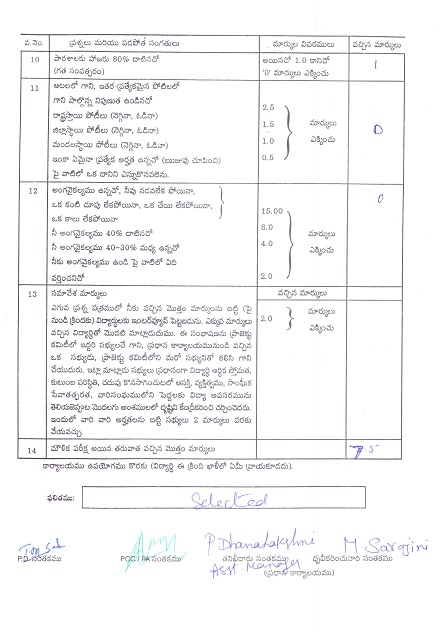 వ.నెం. ప్రశ్నలు మరియు పడపోత సంగతులు మార్కుల వివరములు వచ్చిన మార్కులు
10 పాఠశాలకు హాజరు 80% దాటినదో అయినచో 1.0 కానిచో 1
(గత సంవత్సరం) '0' మార్కులు ఎక్కించు
11 ఆటలలో గాని, ఇతర ప్రత్యేకమైన పోటిలలో
గాని పాల్గొన్న నిపుణత ఉండినదో
రాష్ట్రస్తాయి పోటీలు (నెగ్గినా, ఓడినా) 2.5
జిల్లాస్తాయి పోటీలు (నెగ్గినా, ఓడినా) 1.5 మార్కులు 0
మండలస్తాయి పోటీలు (నెగ్గినా, ఓడినా) 1.0 ఎక్కించు
ఇంకా ఏమైనా ప్రత్యేక అర్హత ఉన్నచో (ఋజువు చూపించి) 0.5
పై వాటిలో ఒక దానిని ఎన్నుకొనవలెను.
12 అంగవైకల్యము ఉన్నచో, నీవు నడవలేక పోయినా, 0
ఒక కంటి చూపు లేకపోయినా, ఒక చేయి లేకపోయినా,
ఒక కాలు లేకపోయినా 15.00
నీ అంగవైకల్యము 40% దాటినదో 8.0 మార్కులు
నీ అంగవైకల్యము 40-30% మధ్య ఉన్నదో 4.0 ఎక్కించు
నీకు అంగవైకల్యము ఉండి పై వాటిలో ఏది
వర్తించనిచో 2.0
13 సమావేశ మార్కులు వచ్చిన మార్కులు
ఎగువ ప్రశ్న పత్రములో నీకు వచ్చిన మొత్తం మార్కులను బట్టి (పై
నుండి క్రిందకు) విద్యార్థులకు ఇంటర్వ్యూవ్ పెట్టబడును. ఎక్కువ మార్కులు 2.0 మార్కులు
వచ్చిన విద్యార్థితో మొదటి మాట్లాడుదుము. ఈ సంభాషణను ప్రాజెక్టు ఎక్కించు
కమిటీలో ఇద్దరి సభ్యులంచే గాని, ప్రధాన కార్యాలయమునుండి వచ్చిన
ఒక సభ్యుడు, ప్రాజెక్టు కమిటీలోని మరో సభ్యునితో కలిసి గాని
చేయుదురు. ఇట్లా మాట్లాడు సభ్యులు ప్రధానంగా విద్యార్థి ఆర్థిక స్తోమత,
కుటుంబ పరిస్థితి, చదువు కొనసాగించుటలో ఆసక్తి, వ్యక్తిత్వము, సాంఘీక
సేవాతత్పరత, వారిసంఘములోని పెద్దలకు విద్యా అవసరమును
తెలియజెప్పుట మొదలగు అంశములలో దృష్టిని కేంద్రీకరించి చర్చించెదరు.
ఇందులో వారి వారి అర్హతలను బట్టి సభ్యులు 2 మార్కులు వరకు
వేయవచ్చు
14 మౌలిక పరీక్ష అయిన తరువాత వచ్చిన మొత్తం మార్కులు 7.5
కార్యాలయము ఉపయోగము కొరకు (విద్యార్థి ఈ క్రింది ఖాళీలో ఏమీ వ్రాయకూడదు).
ఫలితము: Selected
P Dhanalakshmi M Sarojini
P.D. సంతకము POC / PA సంతకము తనిఖీదారు సంతకము ధృవీకరించువారి సంతకము
Asst. Manager (ప్రధాన కార్యాలయము)